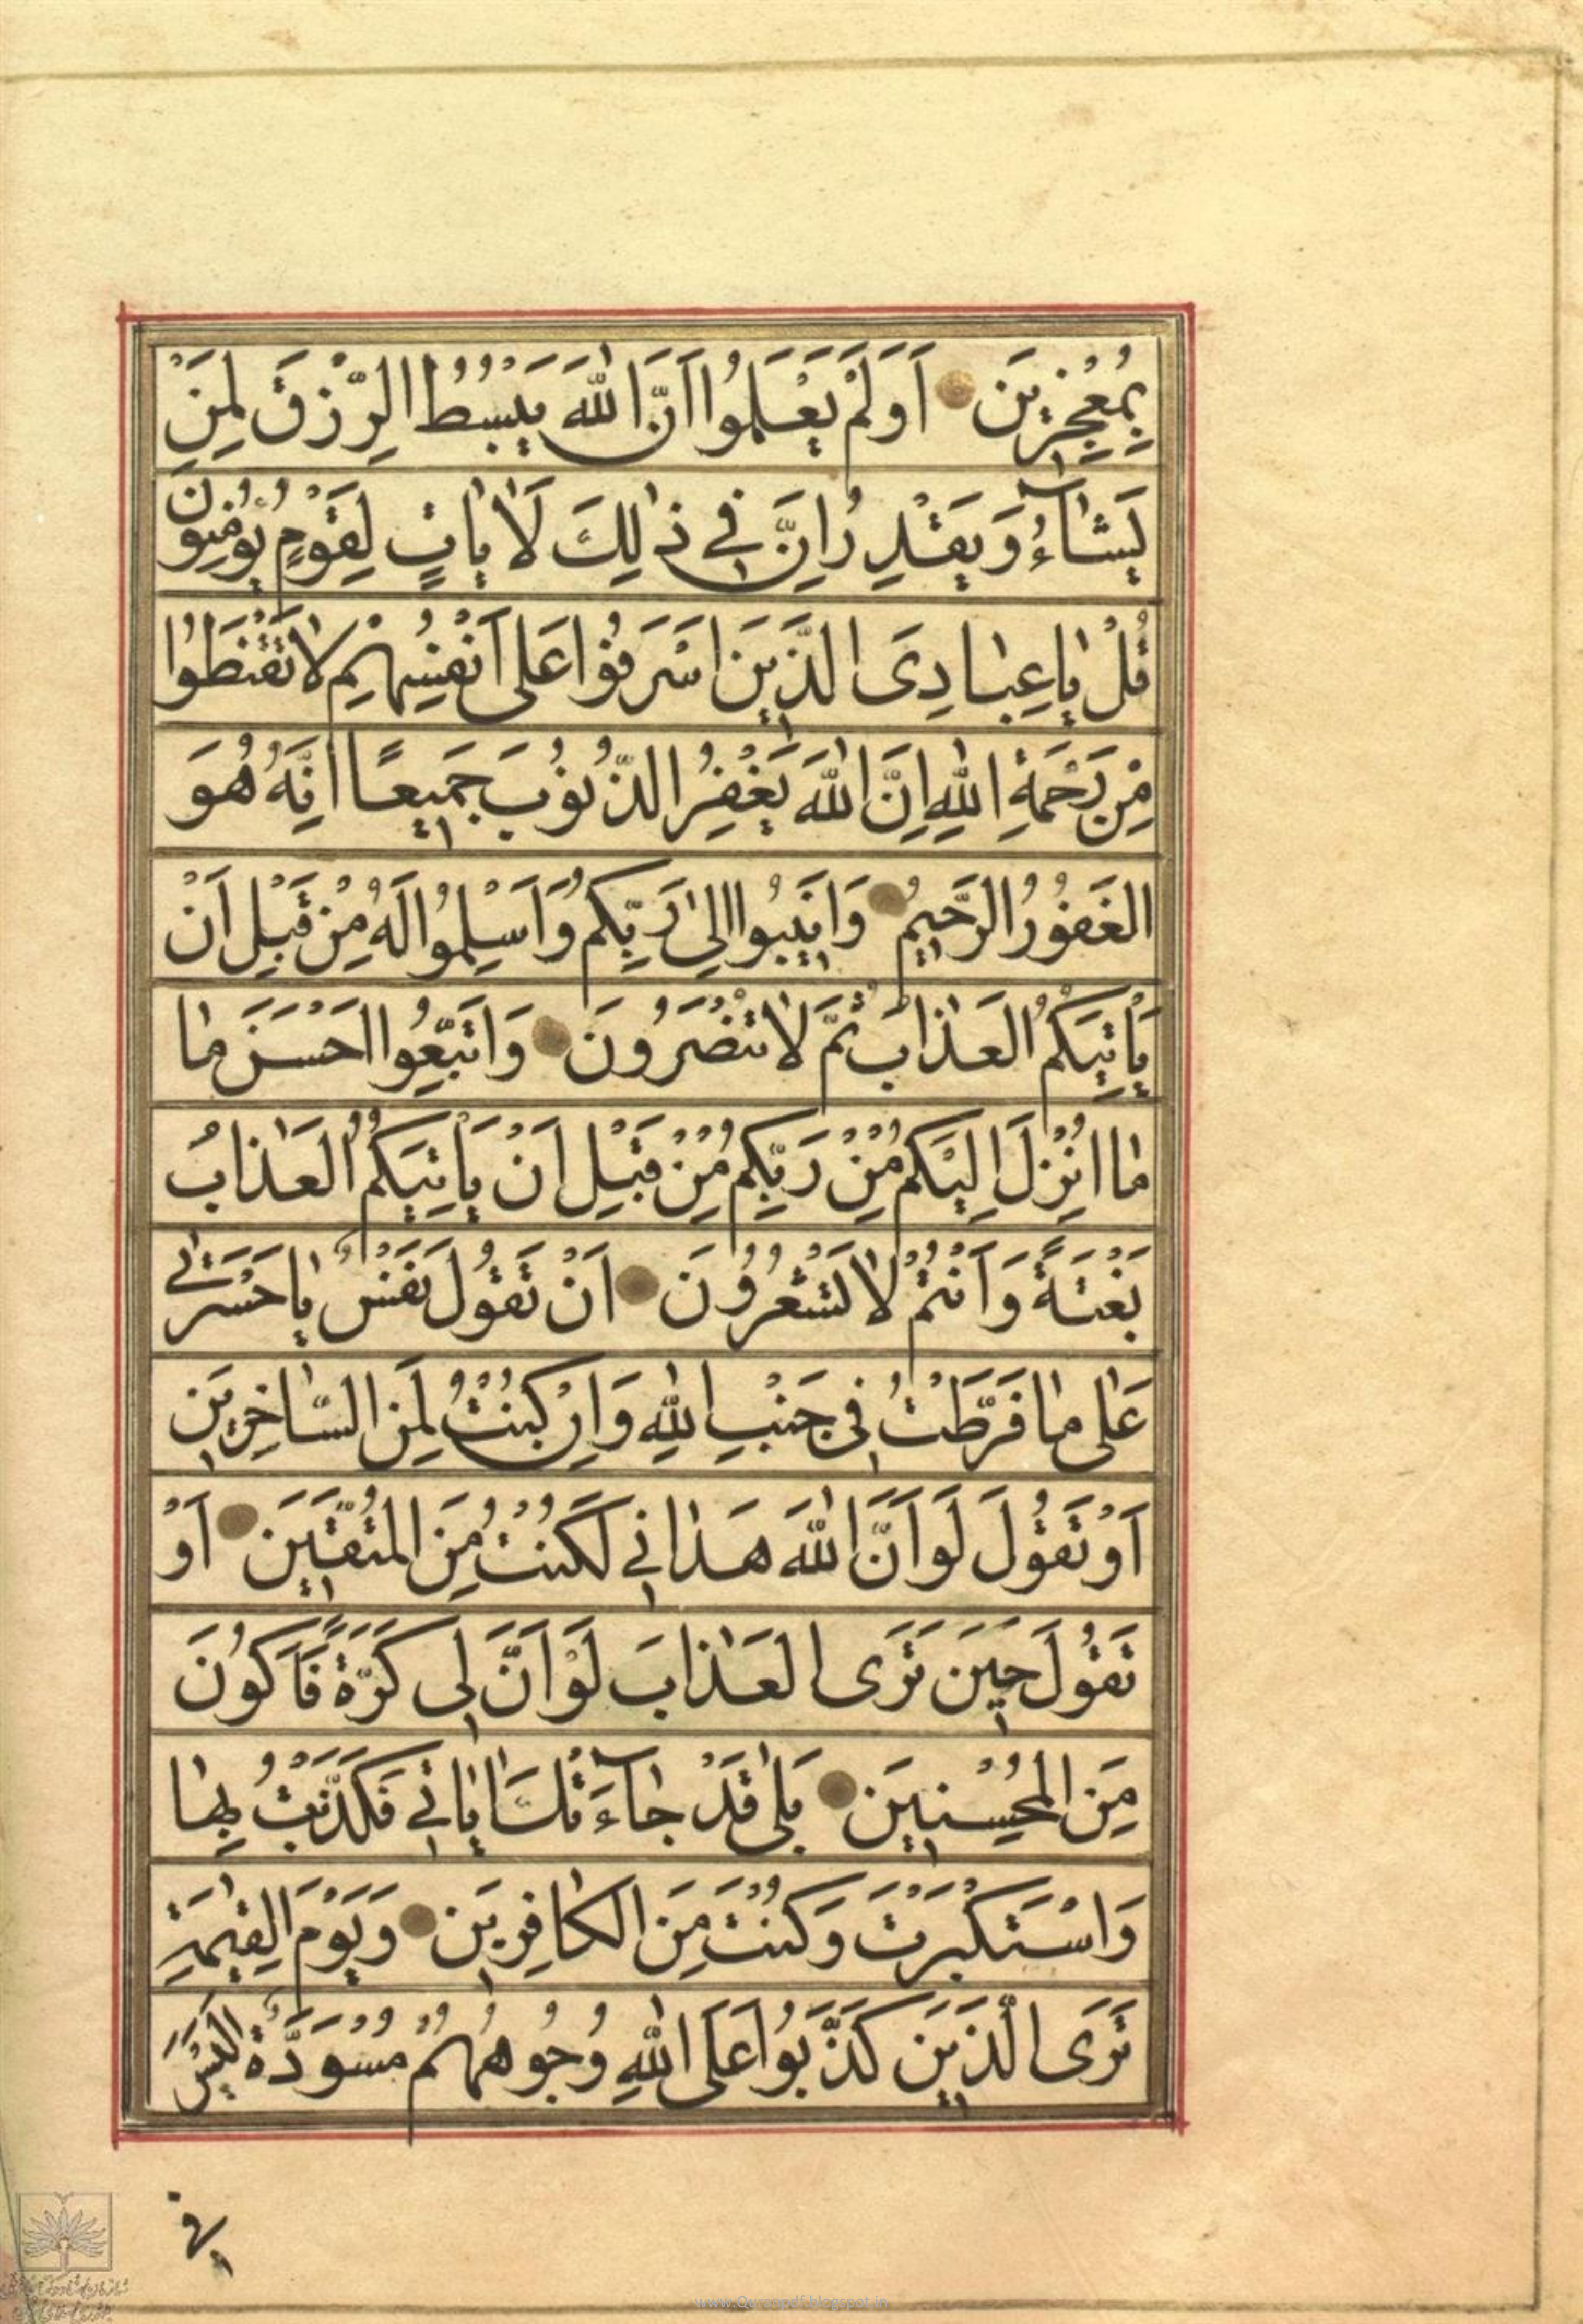 بِمُعْجِزِينَ اَوَلَمْ يَعْلَمُوا اَنَّ اللّٰهَ يَبْسُطُ الرِّزْقَ لِمَنْ
يَشَآءُ وَيَقْدِرُ اِنَّ فِي ذٰلِكَ لَاٰيَاتٍ لِقَوْمٍ يُؤْمِنُونَ
قُلْ يَاعِبَادِيَ الَّذِينَ اَسْرَفُوا عَلٰى اَنْفُسِهِمْ لَا تَقْنَطُوا
مِنْ رَحْمَةِ اللّٰهِ اِنَّ اللّٰهَ يَغْفِرُ الذُّنُوبَ جَمِيعًا اِنَّهُ هُوَ
الغَفُورُ الرَّحِيمُ وَاَنِيبُوا اِلىٰ رَبِّكُمْ وَاَسْلِمُوا لَهُ مِنْ قَبْلِ اَنْ
يَأْتِيَكُمُ العَذَابُ ثُمَّ لَا تُنْصَرُونَ وَاتَّبِعُوا اَحْسَنَ مَا
مَا اُنْزِلَ اِلَيْكُمْ مِنْ رَبِّكُمْ مِنْ قَبْلِ اَنْ يَأْتِيَكُمُ العَذَابُ
بَغْتَةً وَاَنْتُمْ لَا تَشْعُرُونَ اَنْ تَقُولَ نَفْسٌ يَاحَسْرَتٰى
عَلٰى مَا فَرَّطْتُ فِى جَنْبِ اللّٰهِ وَاِنْ كُنْتُ لَمِنَ السَّاخِرِينَ
اَوْ تَقُولَ لَوْ اَنَّ اللّٰهَ هَدَانِي لَكُنْتُ مِنَ المُتَّقِينَ اَوْ
تَقُولَ حِينَ تَرَى العَذَابَ لَوْ اَنَّ لِى كَرَّةً فَاَكُونَ
مِنَ المُحْسِنِينَ بَلٰى قَدْ جَآءَتْكَ اٰيَاتِي فَكَذَّبْتَ بِهَا
وَاسْتَكْبَرْتَ وَكُنْتَ مِنَ الكَافِرِينَ وَيَوْمَ القِيٰمَةِ
تَرَى الَّذِينَ كَذَّبُوا عَلَى اللّٰهِ وُجُوهُهُمْ مُسْوَدَّةٌ اَلَيْسَ
فى
www.Quranpdf.blogspot.in